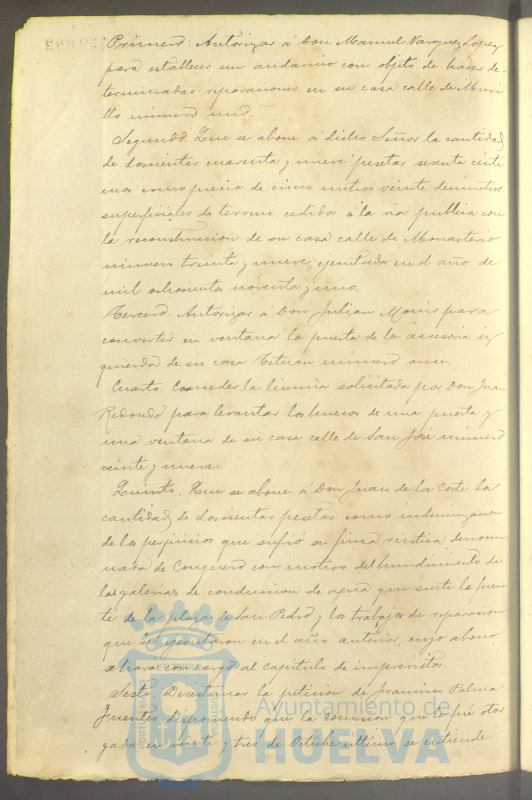 Primero: Autorizar á Don Manuel Vazquez Lopez
para establecer un andamio con objeto de hacer de-
terminadas reparaciones en su casa calle de Muri
llo número uno.
Segundo. Que se abone á dicho Señor la cantidad
de doscientas cuarenta y nueve pesetas sesenta centi
mos como precio de cinco metros veinte decimetros
superficiales de terreno cedidos á la via pública con
la reconstruccion de su casa calle de Monasterio
número treinta y nueve, ejecutada en el año de
mil ochocientos noventa y uno.
Tercero. Autorizar á Don Julian Monis para
convertir en ventana la puerta de la accesoria iz
quierda de su casa Tetuan número once.
Cuarto. Conceder la licencia solicitada por Don Juan
Redondo para levantar los huecos de una puerta y
una ventana de su casa calle de San José número
veinte y nueve.
Quinto. Que se abone á Don Juan de la Corte la
cantidad de doscientas pesetas como indemnizacion
de los perjuicios que sufrió su finca rústica denomi
nada de Conquero con motivo del hundimiento de
las galerias de conduccion de agua que surte la fuen
te de la plaza de San Pedro y los trabajos de reparacion
que se ejecutaron en el año anterior, cuyo abono
se hará con cargo al capitulo de imprevistos.
Sesto. Desestimar la peticion de Francisco Palma
Fuentes, disponiendo que la concesion que le fué otor
gada en veinte y tres de Octubre último se entiende
PORTUS MARIS
CUSTODIA
Ayuntamiento de
HUELVA